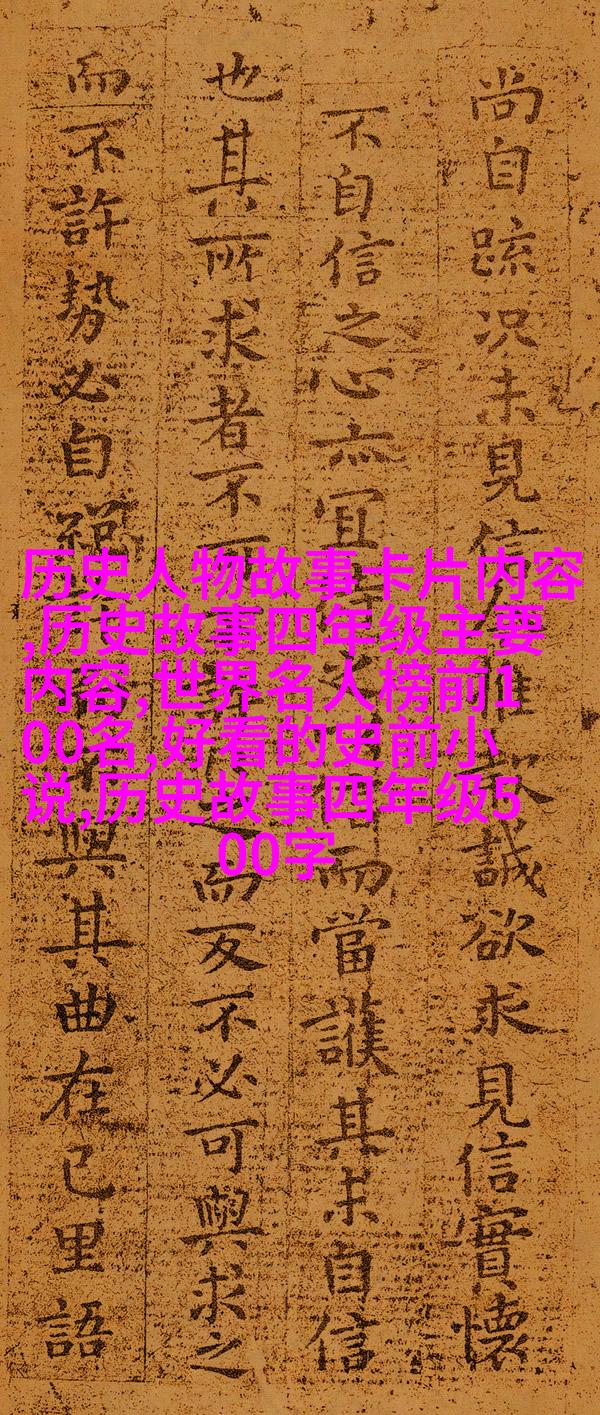 尚自疏况未見信誠欲求見信實懷
不自信之心亦宜而當護其未自信
也其所求者不可而反不必可與求之
而不許勢必自與其曲在己里語
历史人物故事卡片内容
,历史故事四年级主要
内容,世界名人榜前1
00名,好看的史前小
说,历史故事四年级5
00字